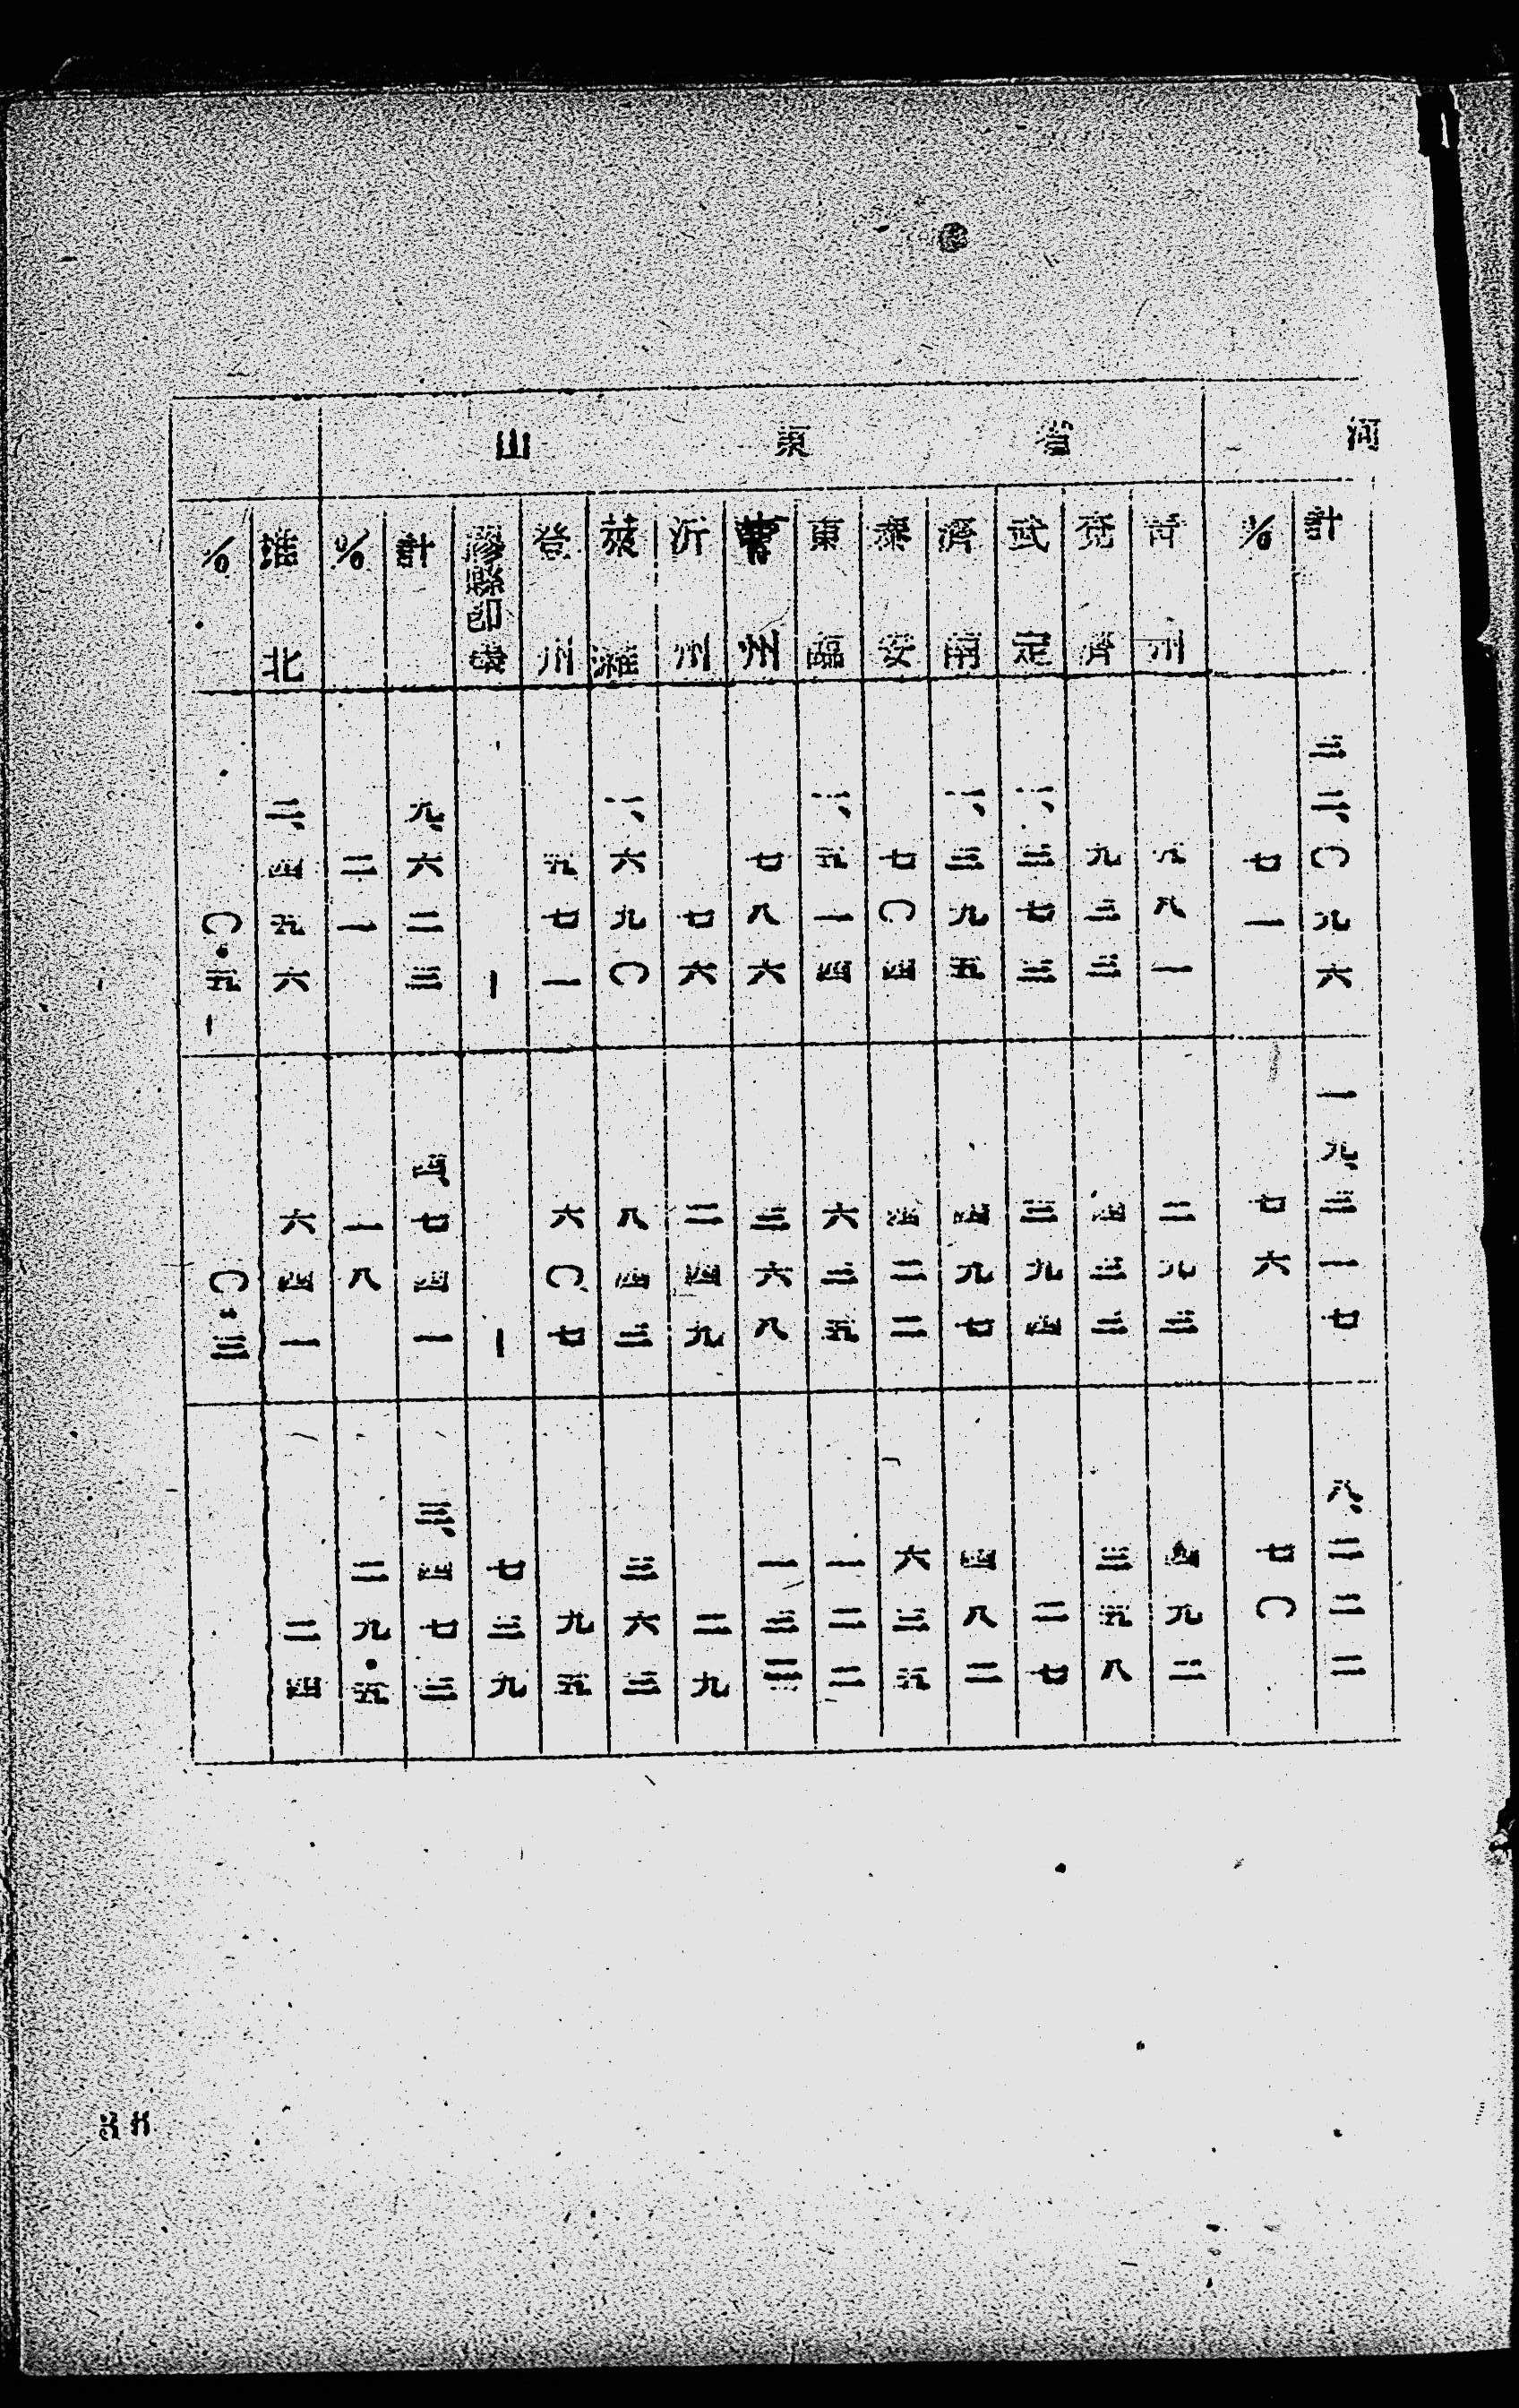 河
計 三二、〇九六 一九、三一七 八、二二二
% 七一 七六 七〇
山東省
青州 五八一 二九三 四九二
兗濟 九三三 四三三 三五八
武定 一、三七三 三九四 二七
濟南 一、三九五 四九七 四八二
泰安 七〇四 四二二 六三五
東臨 一、五一四 六二五 一二二
曹州 七八六 三六八 一三一
沂州 七六 二四九 二九
萊濰 一、六九〇 八四三 三六三
登州 五七一 六〇七 九五
膠縣即墨 — — 七三九
計 九、六二三 四、七四一 三、四七三
% 二一 一八 二九・五
淮北 二、四五六 六四一 二四
% 〇・五一 〇・三
38